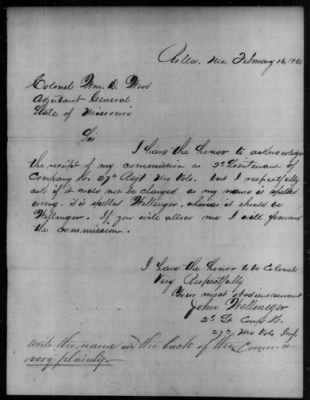 Rolla, Mo. February 16, 186
Colonel Wm. D. Wood
Adjutant General
State of Missouri
Sir
I have the honor to acknowledge
the receipt of my commission as 2d Lieutenant of
Company 27th Regt Mo Vols. but I respectfully
ask if it could not be changed as my name is spelled
wrong. it is spelled whereas it should be
If you will allow me I will forward
the commission.
I have the honor to be Colonel
Very Respectfully
Your most obedient servant
John
2d Lt Comp
27th Mo Vols Inf.
write the name on the back of the Commis
very plainly.